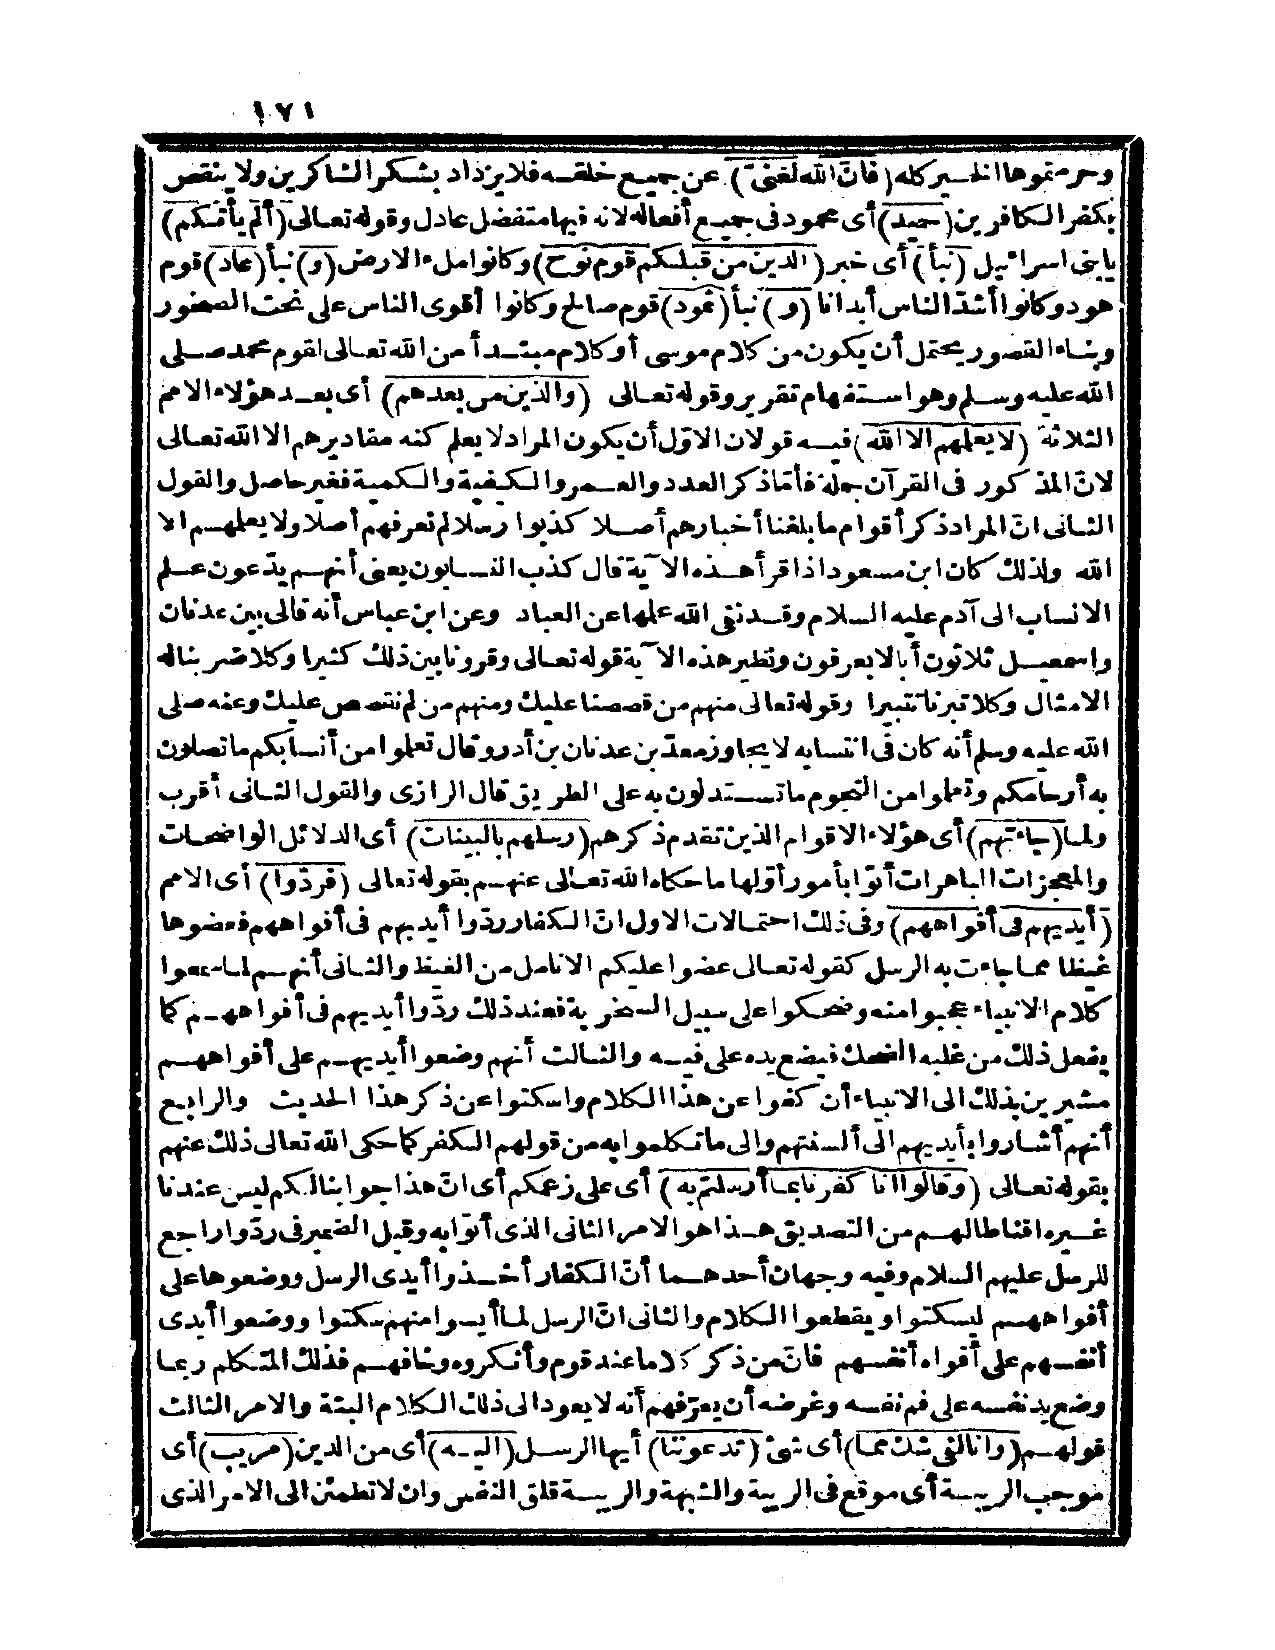 ١٧١
وحرمتموها الخير كله (فانّ الله لغنيّ) عن جميع خلقه فلا يزداد بشكر الشاكرين ولا ينقص
بكفر الكافرين (حميد) أى محمود فى جميع أفعاله لانه فيها متفضل عادل وقوله تعالى (ألم يأتكم)
يا بنى اسرائيل (نبأ) أى خبر (الذين من قبلكم قوم نوح) وكانوا ملء الارض (و) نبأ (عاد) قوم
هود وكانوا أشدّ الناس أبدانا (و) نبأ (ثمود) قوم صالح وكانوا أقوى الناس على نحت الصخور
وبناء القصور يحتمل أن يكون من كلام موسى أو كلام مبتدأ من الله تعالى لقوم محمد صلى
الله عليه وسلم وهو استفهام تقرير وقوله تعالى (والذين من بعدهم) أى بعد هؤلاء الامم
الثلاثة (لا يعلمهم الا الله) فيه قولان الاوّل أن يكون المراد لا يعلم كنه مقاديرهم الا الله تعالى
لانّ المذكور فى القرآن جملة فأمّا ذكر العدد والعمر والكيفية والكمية فغير حاصل والقول
الثانى انّ المراد ذكر أقوام ما بلغنا أخبارهم أصلا كذبوا رسلا لم نعرفهم أصلا ولا يعلمهم الا
الله ولذلك كان ابن مسعود اذا قرأ هذه الآية قال كذب النسابون يعنى أنهم يدّعون علم
الانساب الى آدم عليه السلام وقد نفى الله علمها عن العباد وعن ابن عباس أنه قال بين عدنان
واسمعيل ثلاثون أبا لا يعرفون ونظير هذه الآية قوله تعالى وقرونا بين ذلك كثيرا وكلا ضربنا له
الامثال وكلا تبرنا تتبيرا وقوله تعالى منهم من قصصنا عليك ومنهم من لم نقصص عليك وعنه صلى
الله عليه وسلم أنه كان فى انتسابه لا يجاوز معدّ بن عدنان بن أدد وقال تعلموا من أنسابكم ما تصلون
به أرحامكم وتعلموا من النجوم ما تستدلون به على الطريق قال الرازى والقول الثانى أقرب
ولما (جاءتهم) أى هؤلاء الاقوام الذين تقدم ذكرهم (رسلهم بالبينات) أى الدلائل الواضحات
والمعجزات الباهرات أتوا بأمور أولها ما حكاه الله تعالى عنهم بقوله تعالى (فردّوا) أى الامم
(أيديهم فى أفواههم) وفى ذلك احتمالات الاول انّ الكفار ردّوا أيديهم فى أفواههم فعضوها
غيظا مما جاءت به الرسل كقوله تعالى عضوا عليكم الانامل من الغيظ والثانى أنهم لما سمعوا
كلام الانبياء عجبوا منه وضحكوا على سبيل السخرية فعند ذلك ردّوا أيديهم فى أفواههم كما
يفعل ذلك من غلبه الضحك فيضع يده على فيه والثالث أنهم وضعوا أيديهم على أفواههم
مشيرين بذلك الى الانبياء أن كفوا عن هذا الكلام واسكتوا عن ذكر هذا الحديث والرابع
أنهم أشاروا بأيديهم الى ألسنتهم والى ما تكلموا به من قولهم الكفر كما حكى الله تعالى ذلك عنهم
بقوله تعالى (وقالوا انا كفرنا بما أرسلتم به) أى على زعمكم أى انّ هذا جوابنا لكم ليس عندنا
غيره اقناطا لهم من التصديق هذا هو الامر الثانى الذى أتوا به وقيل الضمير فى ردّوا راجع
للرسل عليهم السلام وفيه وجهان أحدهما أنّ الكفار أخذوا أيدى الرسل ووضعوها على
أفواههم ليسكتوا ويقطعوا الكلام والثانى انّ الرسل لما أيسوا منهم سكتوا ووضعوا أيدى
أنفسهم على أفواه أنفسهم فانّ من ذكر كلاما عند قوم وأنكروه وخافهم فذلك المتكلم ربما
وضع يد نفسه على فم نفسه وغرضه أن يعرّفهم أنه لا يعود الى ذلك الكلام البتة والامر الثالث
قولهم (وانا لفى شك مما) أى شئ (تدعوننا) أيها الرسل (اليه) أى من الدين (مريب) أى
موجب الريبة أى موقع فى الريبة والشبهة والريبة قلق النفس وان لا تطمئن الى الامر الذى